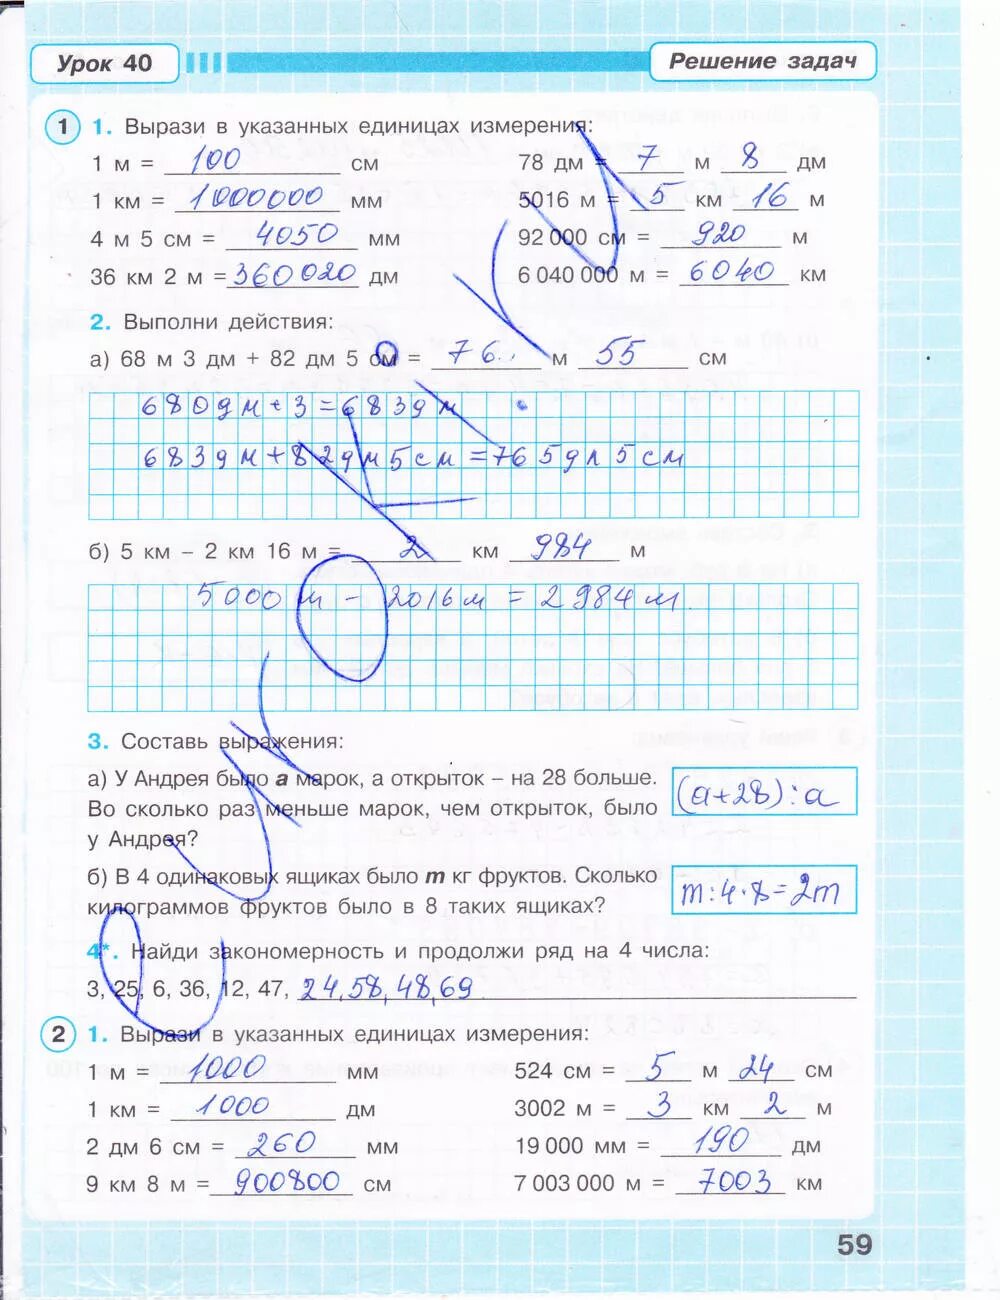 Урок 40
Решение задач
1 1. Вырази в указанных единицах измерения:
1 м = 100 см 78 дм = 7 м 8 дм
1 км = 1000000 мм 5016 м = 5 км 16 м
4 м 5 см = 4050 мм 92 000 см = 920 м
36 км 2 м = 360020 дм 6 040 000 м = 6040 км
2. Выполни действия:
а) 68 м 3 дм + 82 дм 5 см = 76 м 55 см
680дм+3=683дм
683дм+82дм5см=765дм5см
б) 5 км – 2 км 16 м = 2 км 984 м
5000м – 2016м = 2984м
3. Составь выражения:
а) У Андрея было a марок, а открыток – на 28 больше.
Во сколько раз меньше марок, чем открыток, было
у Андрея?
(a+28):a
б) В 4 одинаковых ящиках было m кг фруктов. Сколько
килограммов фруктов было в 8 таких ящиках?
m:4·8=2m
4*. Найди закономерность и продолжи ряд на 4 числа:
3, 25, 6, 36, 12, 47, 24,58,48,69
2 1. Вырази в указанных единицах измерения:
1 м = 1000 мм 524 см = 5 м 24 см
1 км = 1000 дм 3002 м = 3 км 2 м
2 дм 6 см = 260 мм 19 000 мм = 190 дм
9 км 8 м = 900800 см 7 003 000 м = 7003 км
59